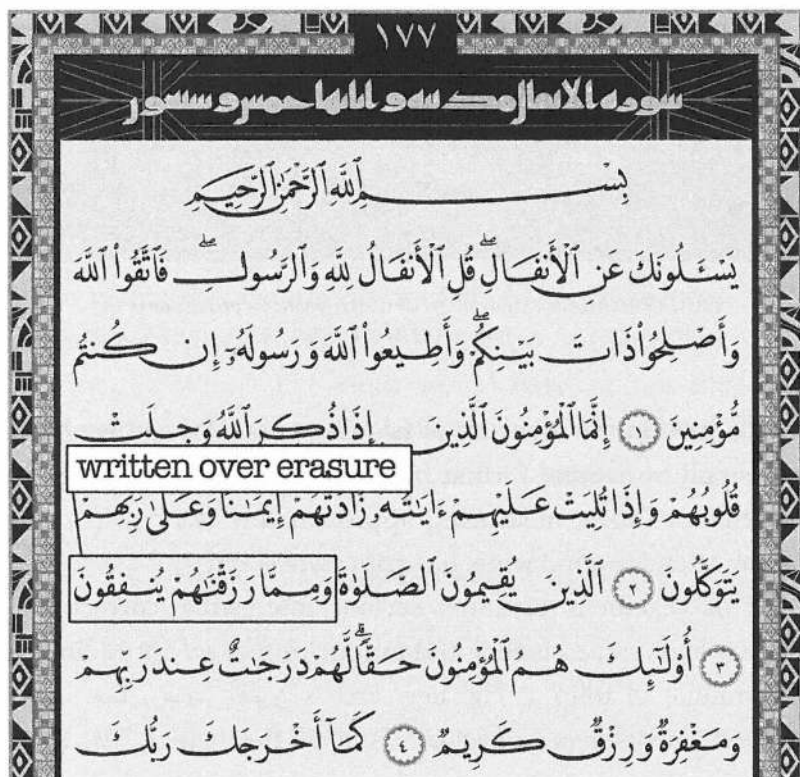 ١٧٧
سورة الانفال مدنية و اياتها خمس و سبعون
بِسْمِ ٱللَّهِ ٱلرَّحْمَٰنِ ٱلرَّحِيمِ
يَسْـَٔلُونَكَ عَنِ ٱلْأَنفَالِ ۖ قُلِ ٱلْأَنفَالُ لِلَّهِ وَٱلرَّسُولِ ۖ فَٱتَّقُوا۟ ٱللَّهَ
وَأَصْلِحُوا۟ ذَاتَ بَيْنِكُمْ ۖ وَأَطِيعُوا۟ ٱللَّهَ وَرَسُولَهُۥٓ إِن كُنتُم
مُّؤْمِنِينَ ١ إِنَّمَا ٱلْمُؤْمِنُونَ ٱلَّذِينَ إِذَا ذُكِرَ ٱللَّهُ وَجِلَتْ
written over erasure
قُلُوبُهُمْ وَإِذَا تُلِيَتْ عَلَيْهِمْ ءَايَٰتُهُۥ زَادَتْهُمْ إِيمَٰنًا وَعَلَىٰ رَبِّهِمْ
يَتَوَكَّلُونَ ٢ ٱلَّذِينَ يُقِيمُونَ ٱلصَّلَوٰةَ وَمِمَّا رَزَقْنَٰهُمْ يُنفِقُونَ
٣ أُو۟لَٰٓئِكَ هُمُ ٱلْمُؤْمِنُونَ حَقًّا ۚ لَّهُمْ دَرَجَٰتٌ عِندَ رَبِّهِمْ
وَمَغْفِرَةٌ وَرِزْقٌ كَرِيمٌ ٤ كَمَآ أَخْرَجَكَ رَبُّكَ